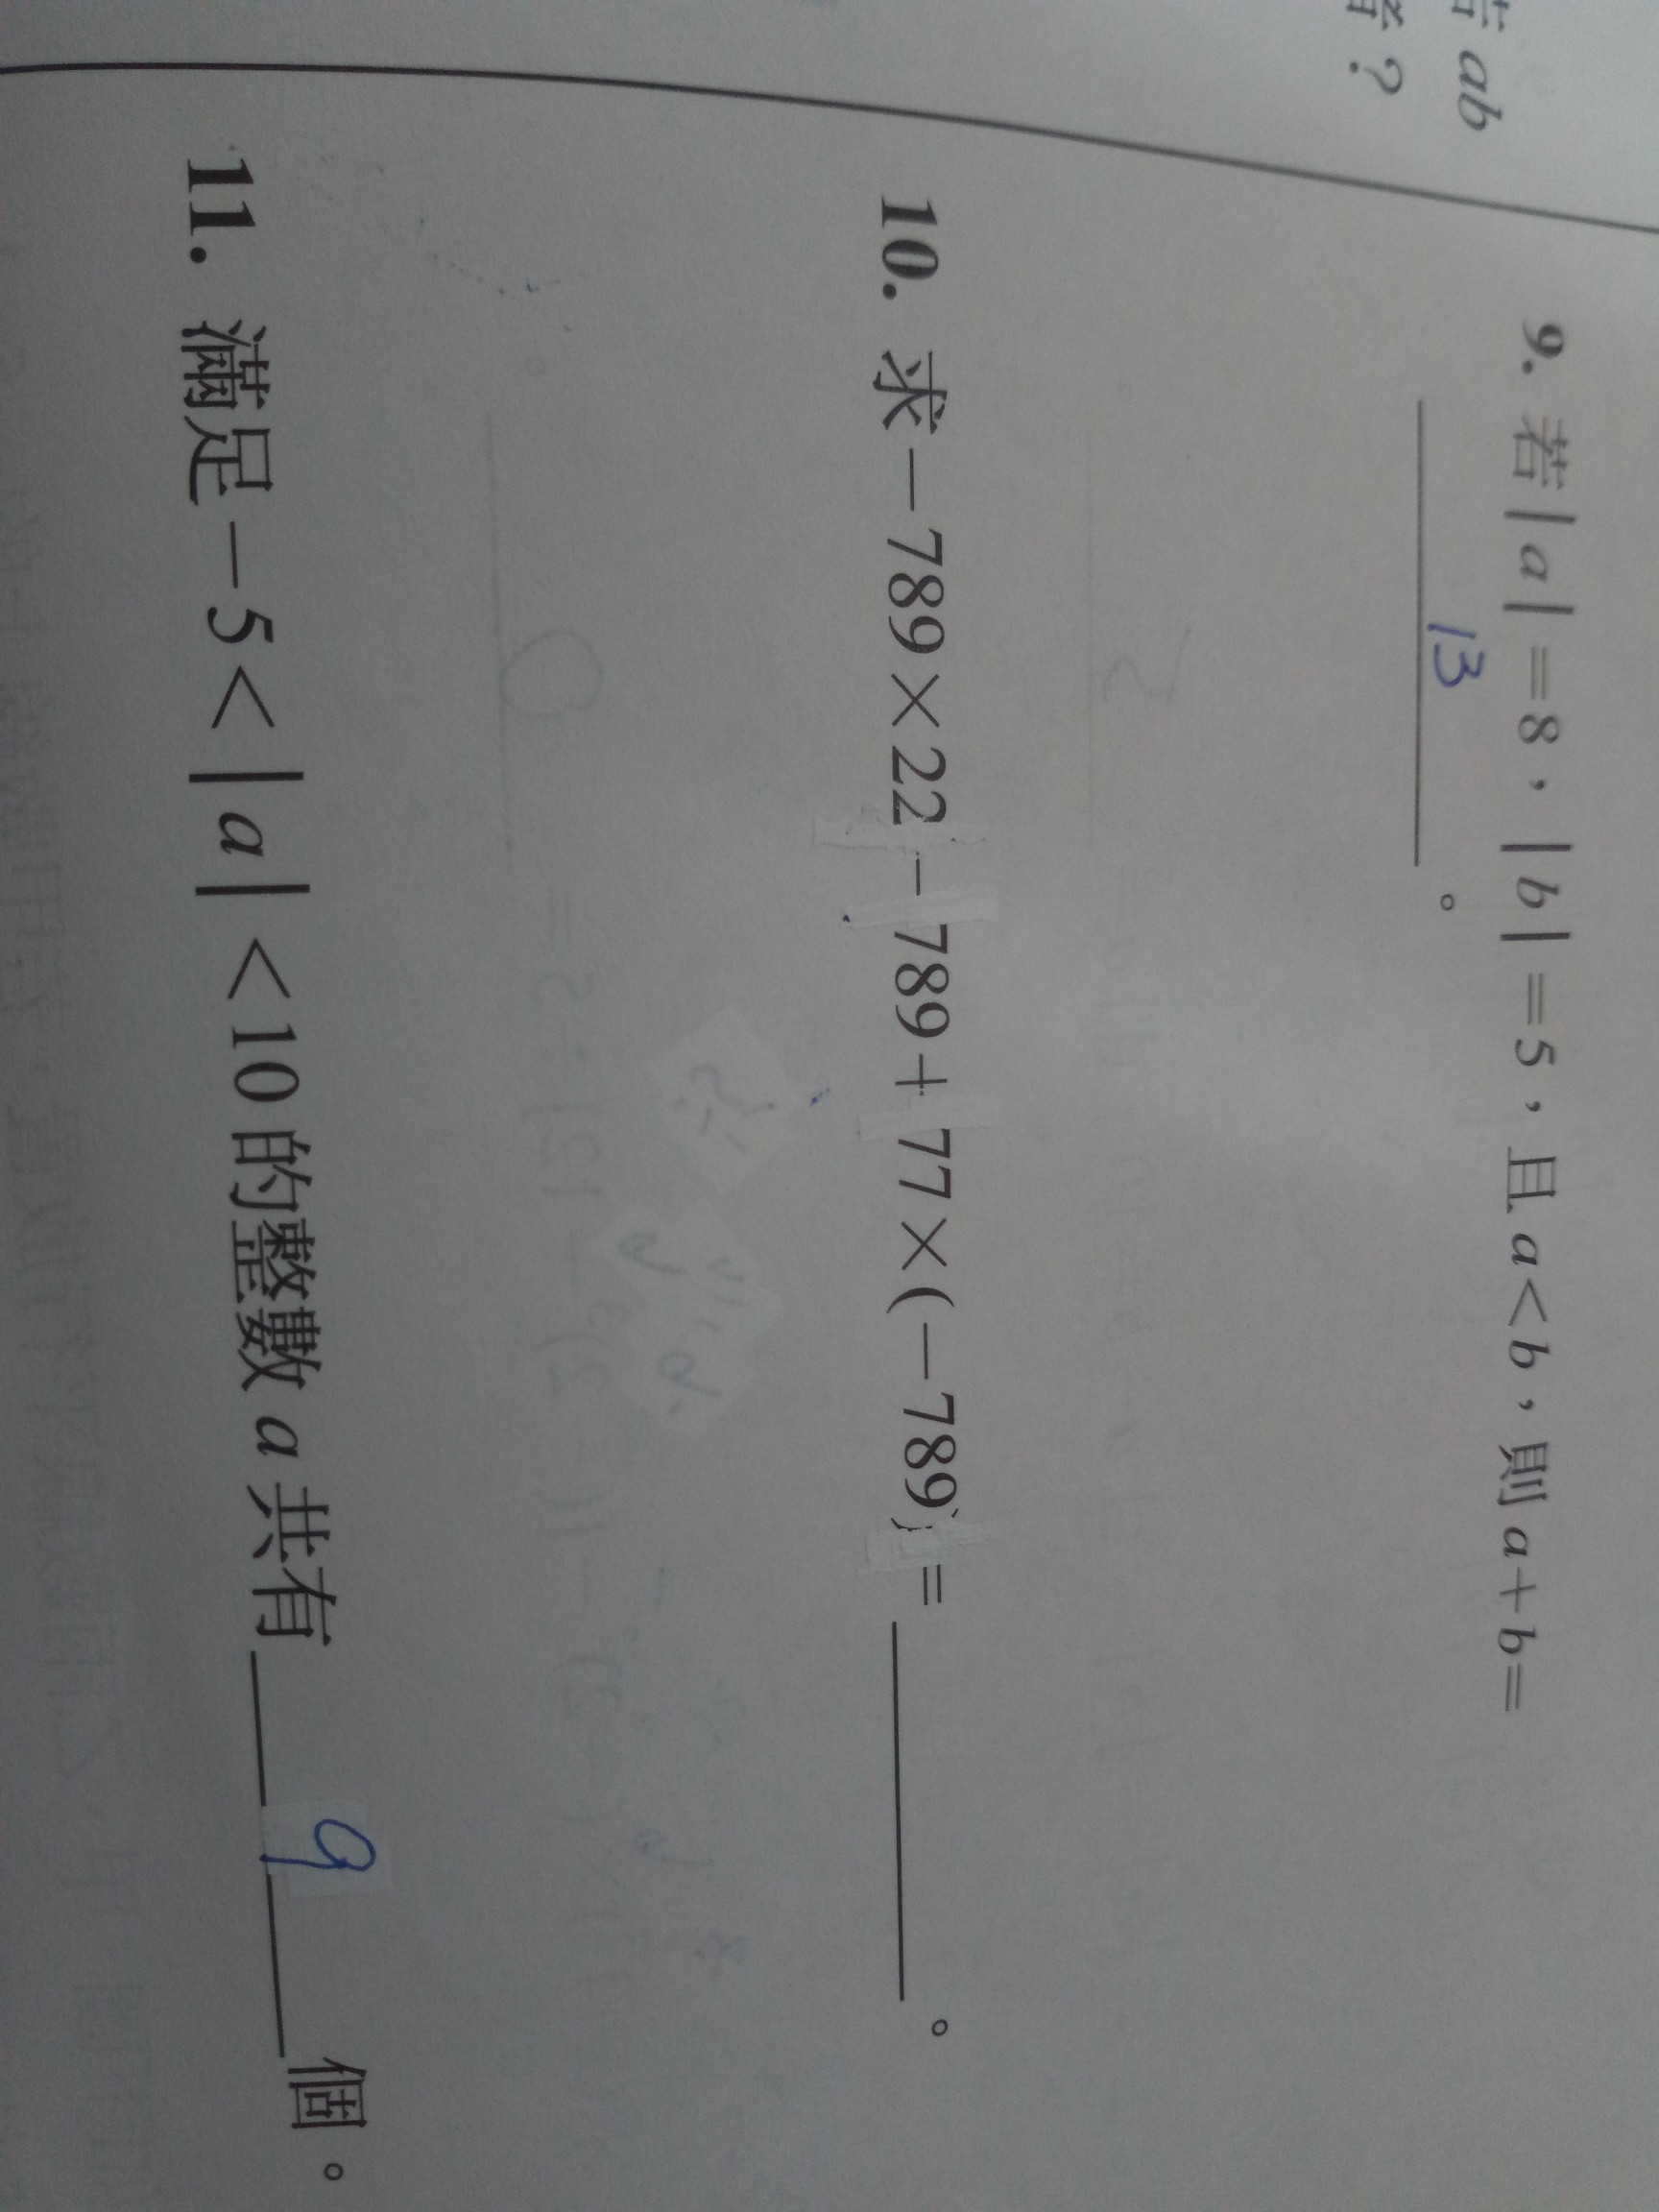 ab
?
9. 若|a|=8，|b|=5，且a<b，則a+b=
13。
10. 求-789×22-789+77×(-789)=。
11. 滿足-5<|a|<10的整數a共有9個。